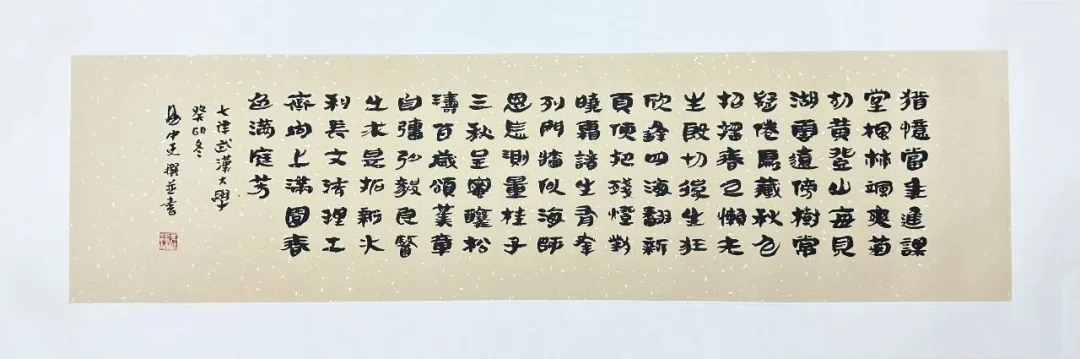 猶憶當年進課
堂楓林颯爽菊
初黄登山每見
湖雲遠傍樹常
疑倦鳥藏秋色
招摇春色懶老
生殷切後生狂
欣逢四海翻新
頁便把殘燈對
曉霜諸生有幸
列門牆似海師
恩怎測量桂子
三秋呈蜜釀松
濤百歲頌華章
自彊弘毅良醫
生求是拓新火
利長文法理工
齊向上滿園春
色滿庭芳
七律武漢大學
癸卯冬
易中天撰並書